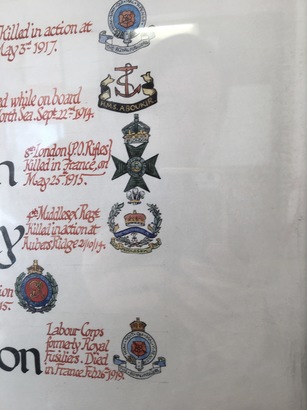 Killed in action at
May 3rd 1917.
while on board
North Sea. Sept. 22nd 1914.
H.M.S. ABOUKIR
8th London (P.O. Rifles)
Killed in France, on
May 25th 1915.
n
4th Middlesex Regt
Killed in action at
Aubers Ridge 21/10/14.
y
on
Labour Corps
formerly Royal
Fusiliers. Died
in France Feb. 26th 1919.